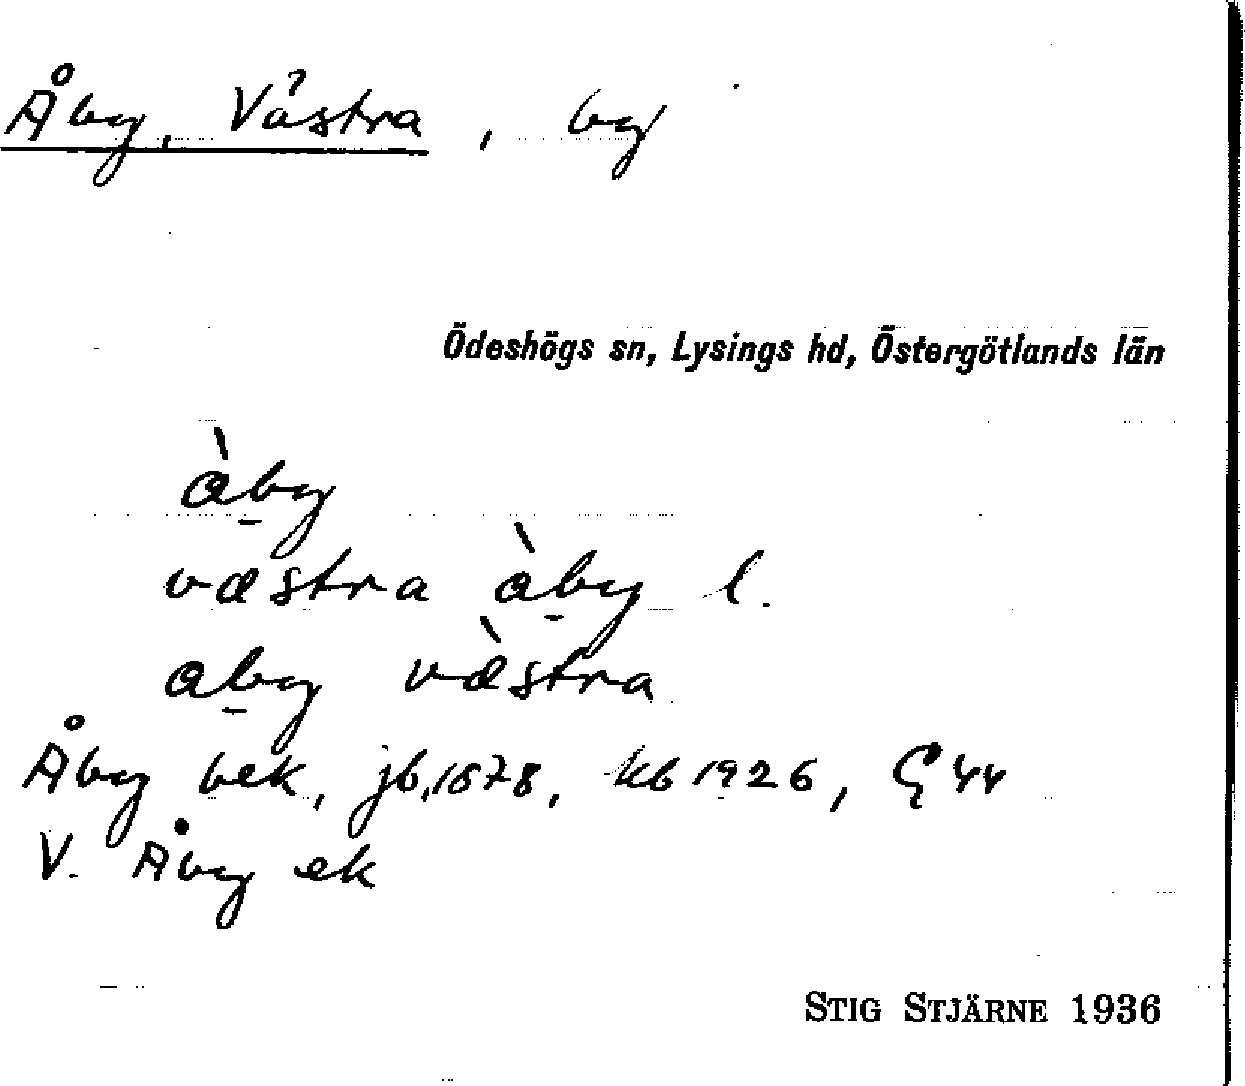 Åby, Västra, by
Ödeshögs sn, Lysings hd, Östergötlands län
àby
væstra àby l.
aby væ̀stra
Åby bek, jb, 1878, kb 1926, G 44
V. Åby ek
STIG STJÄRNE 1936